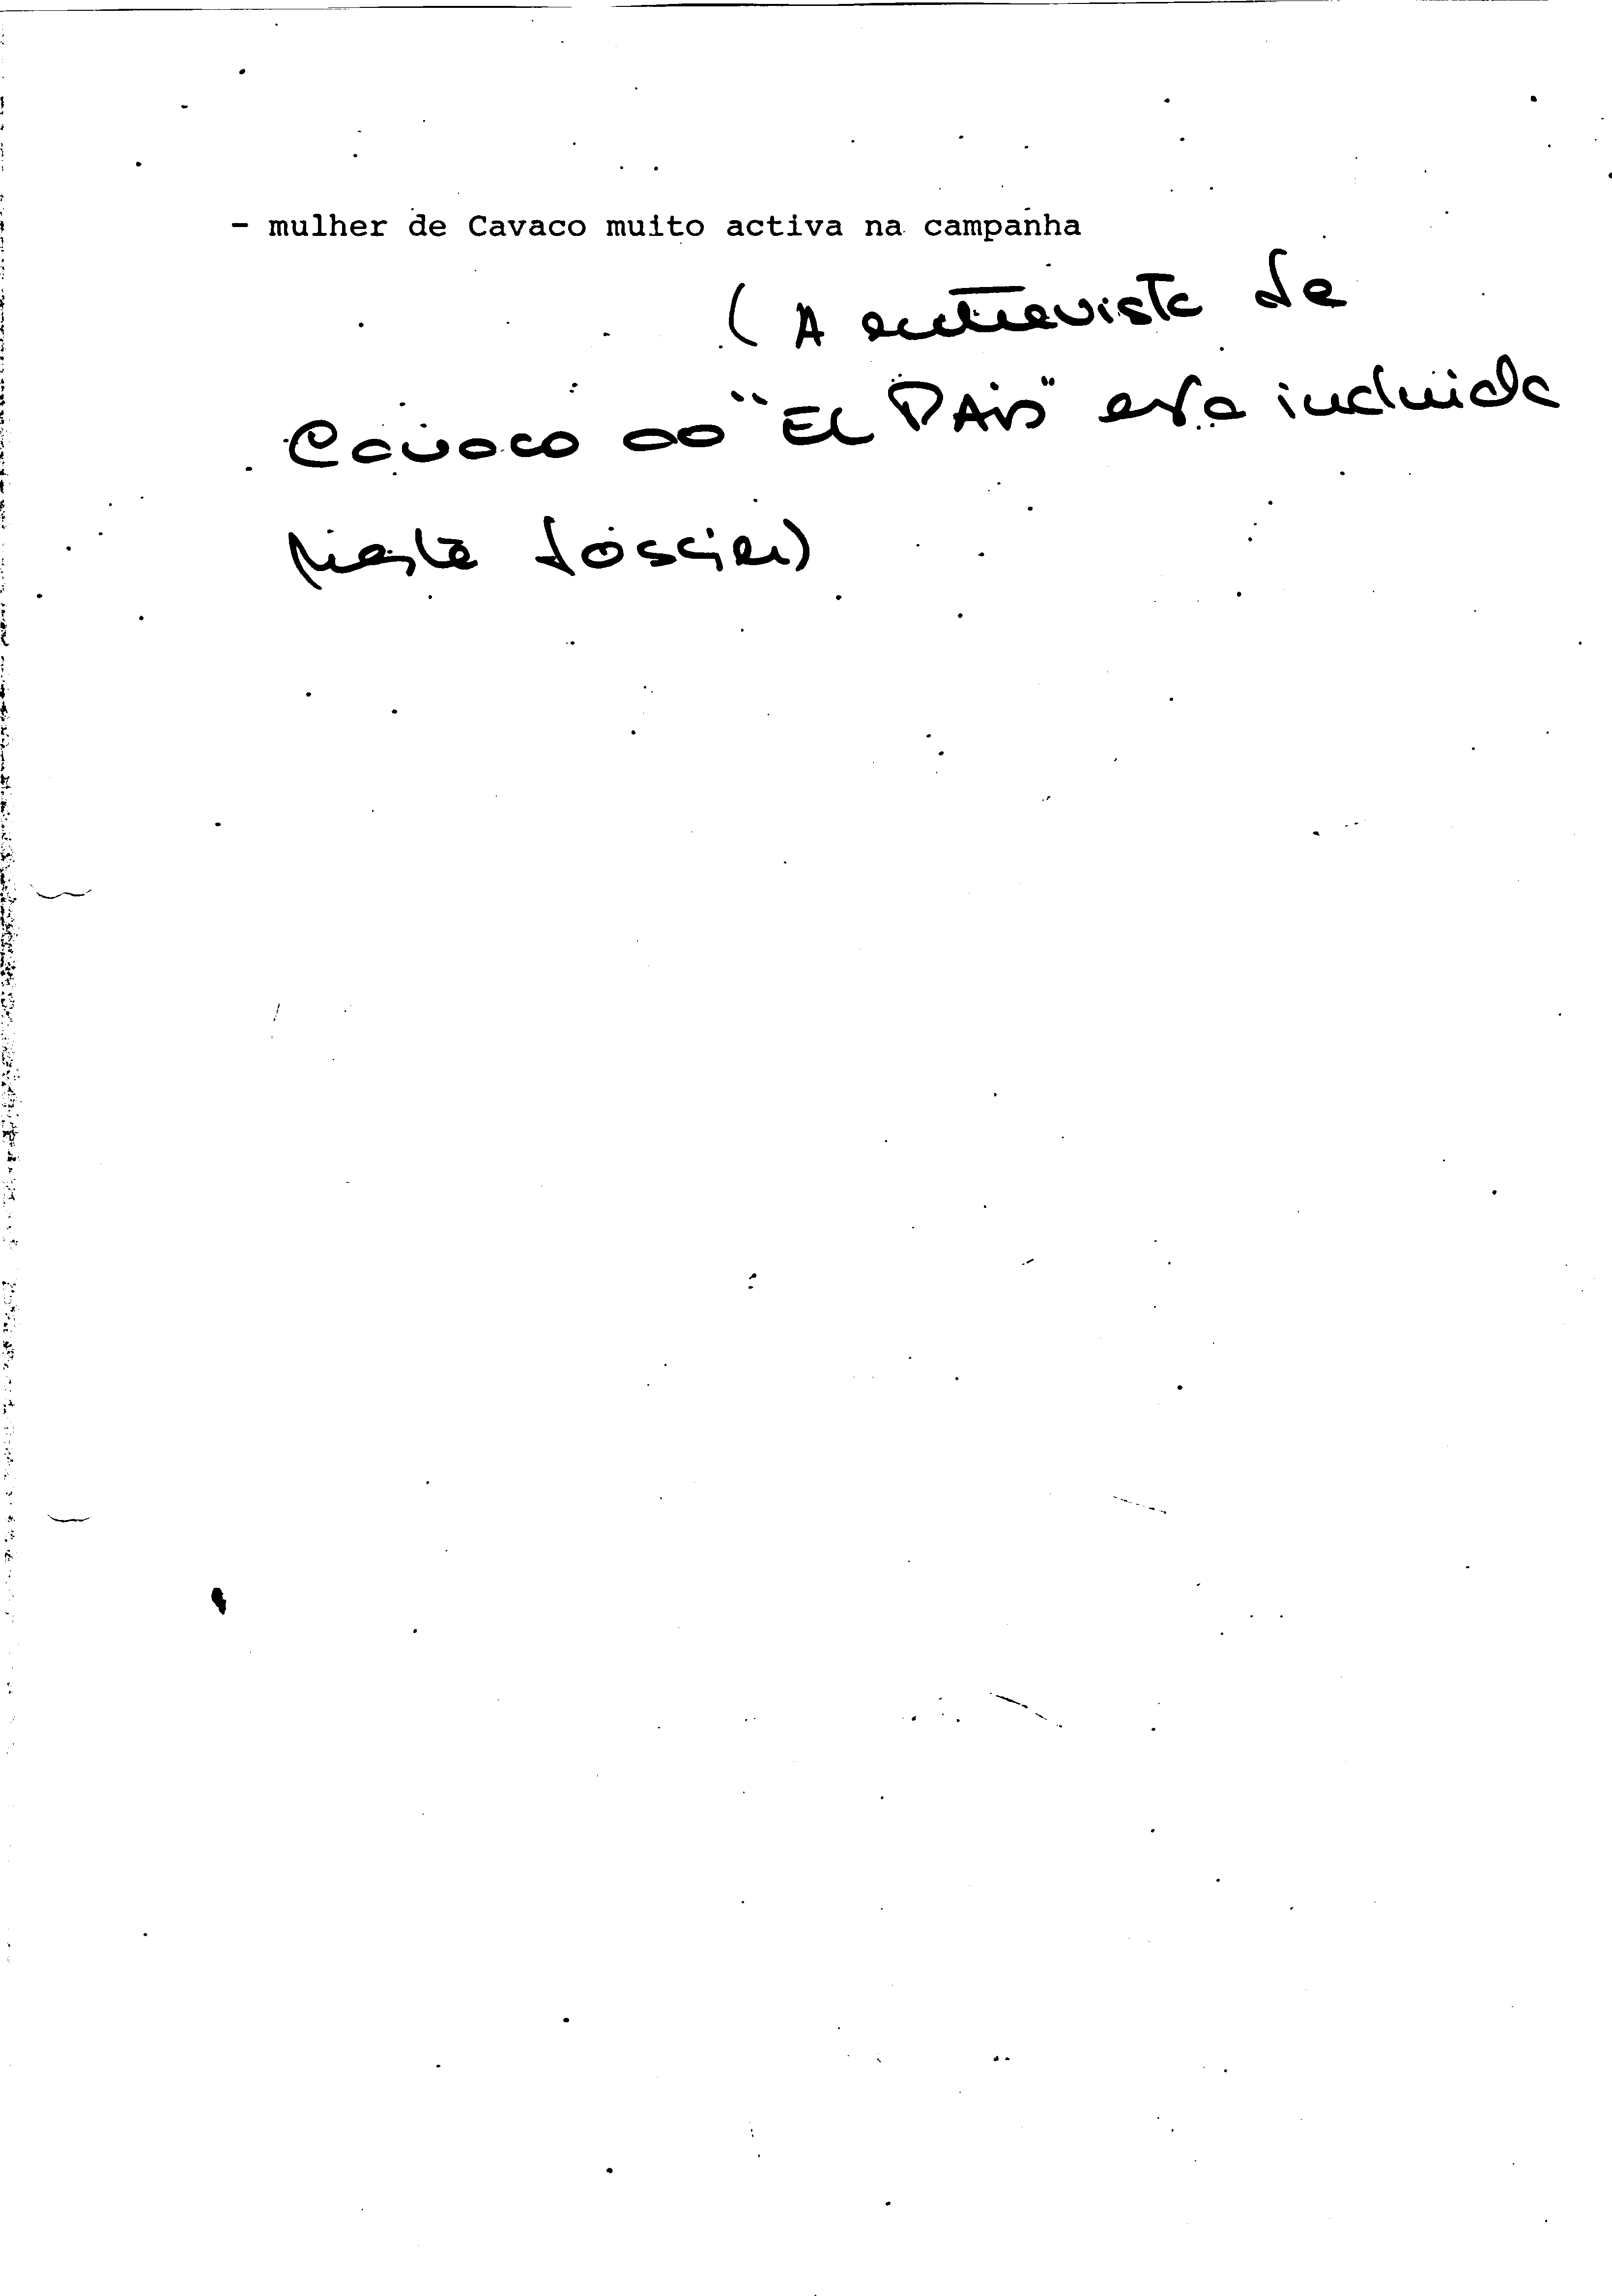 - mulher de Cavaco muito activa na campanha
(A entrevista de
Cavaco ao "EL PAIS" está incluida
neste dossier)